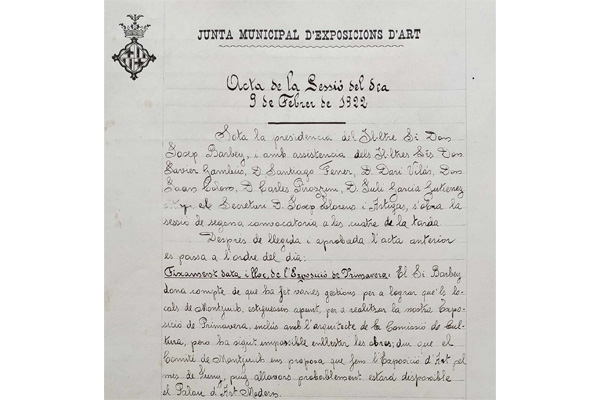 JUNTA MUNICIPAL D'EXPOSICIONS D'ART
Acta de la Sessió del dia
9 de Febrer de 1922
Sota la presidencia del Il·ltre Sr Don
Josep Barbey, i amb assistencia dels Il·ltres Srs Don
Xavier Gambús, D. Santiago Ferrer, D. Dari Vilás, Don
Joan Colom, D. Carles Pirozzini, D. Juli García Gutierrez
el Secretari D. Josep Llorens i Artigas, s'obra la
sessió de segona convocatoria a les cuatre de la tarda.
Despres de llegida i aprobada l'acta anterior
es passa a l'ordre del dia:
Fixansent data i lloc, de l'Exposició de Primavera: El Sr Barbey
dona compte de que ha fet varies gestions per a lograr que'ls lo-
cals de Montjuich, estiguessin apunt, per a realitzar la nostra Expo-
sició de Primavera, inclús amb l'arquitecte de la Comissió de Cul-
tura, pero ha sigut impossible enllestir les obres; diu que el
Comité de Montjuich ens proposa que fem l'Exposició d'Art pel
mes de Juny, puig allavors probablement estará disponible
el Palau d'Art Modern.